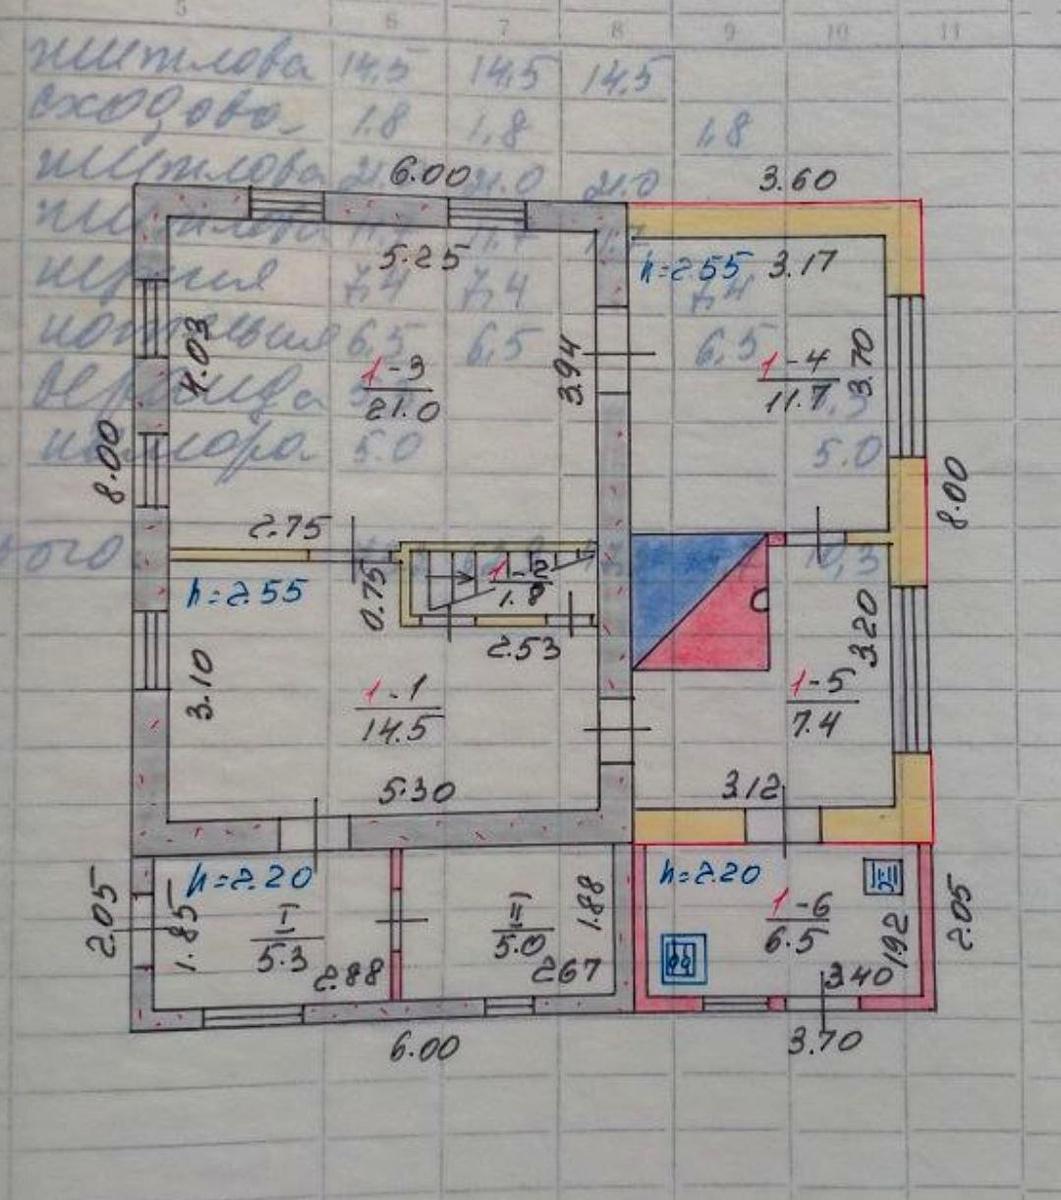 5 6 7 8 9 10 11
житлова 14.5 14.5 14.5
сходова 1.8 1.8 1.8
житлова 21.0 21.0 21.0
6.00 3.60
житлова 11.7 11.7 11.7
5.25 h=2.55 3.17
кухня 7,4 7,4 7,4
котельня 6,5 6,5 6,5
4.03 3.94 3.70
1-3 1-4
21.0 11.7
веранда 5.3
комора 5.0 5.0
8.00 8.00
2.75
ого 10,3
h=2.55 0.75 1-2
1.8
2.53 3.20
3.10 1-1 1-5
14.5 7.4
5.30 3.12
h=2.20 h=2.20
2.05 1.85 I II 1.88 1-6 1.92 2.05
5.3 5.0 6.5
2.88 2.67 3.40
6.00 3.70